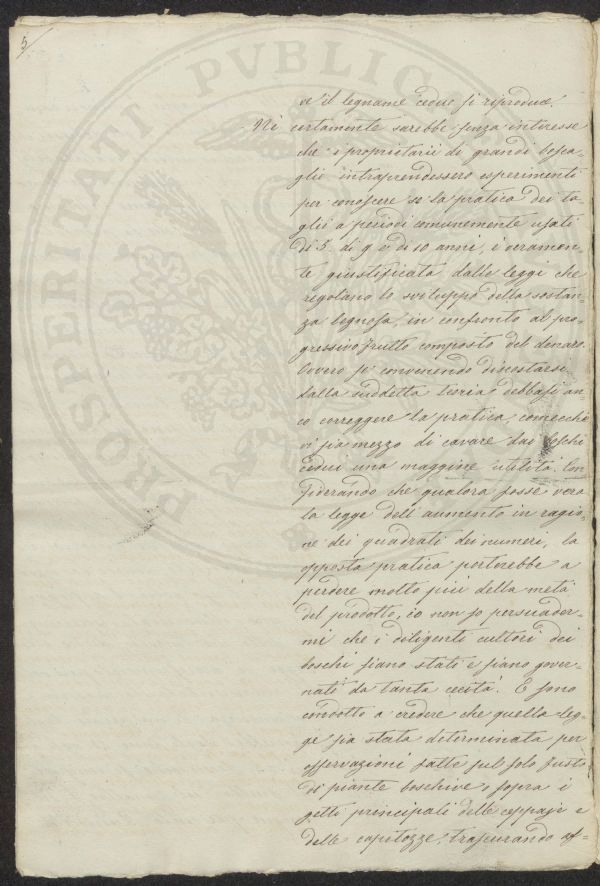 5
PROSPERITATI PVBLICAE
ve il legname ceduo si riproduce.
Nè certamente sarebbe senza interesse
che i proprietarii di grandi bosca=
glie intraprendessero esperimenti
per conoscere se la pratica dei ta
glii a periodi comunemente usati
di 5, di 9 o di 10 anni, è veramen=
te giustificata dalle leggi che
regolano lo sviluppo della sostan=
za legnosa, in confronto al pro=
gressivo frutto composto del denaro.
Ovvero se convenendo discostarsi
dalla suddetta teoria debbasi an=
co correggere la pratica, comecchè
vi sia mezzo di cavare dai boschi
cedui una maggiore utilità. Con
siderando che qualora fosse vera
la legge dell'aumento in ragio=
ne dei quadrati dei numeri, la
opposta pratica porterebbe a
perdere molto più della metà
del prodotto, io non so persuader=
mi che i diligenti cultori dei
boschi siano stati e siano gover=
nati da tanta cecità. E sono
condotto a credere che quella leg=
ge sia stata determinata per
osservazioni fatte sul solo fusto
di piante boschive o sopra i
getti principali delle ceppaje e
delle capitozze, trascurando af=